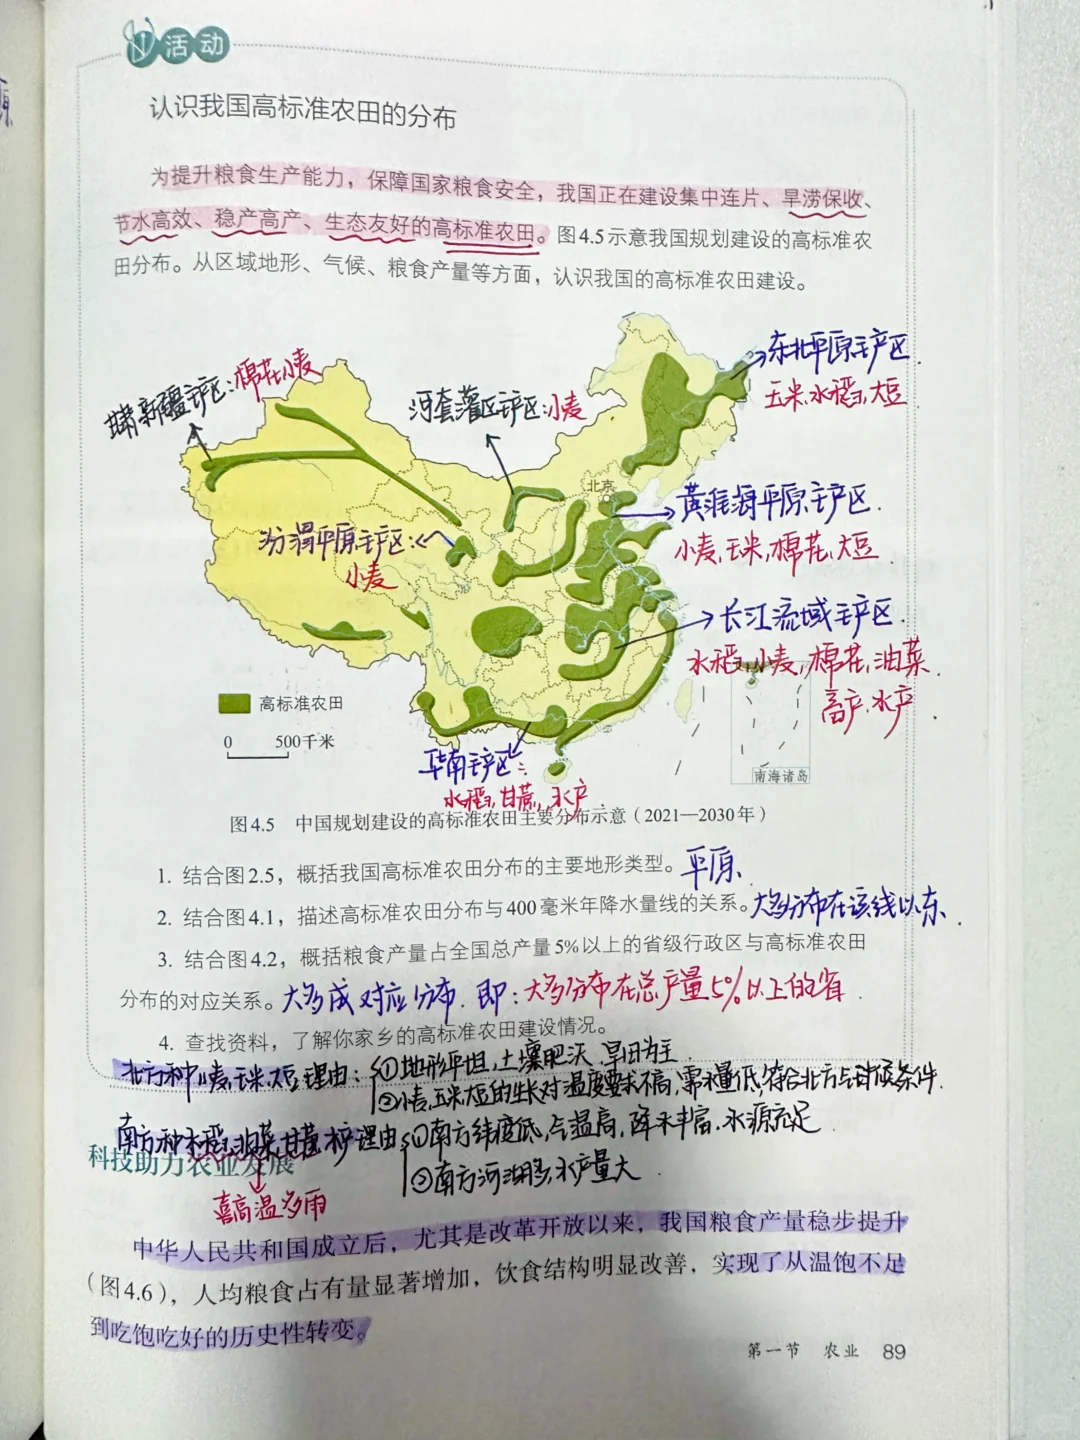 活动
认识我国高标准农田的分布
为提升粮食生产能力，保障国家粮食安全，我国正在建设集中连片、旱涝保收、
节水高效、稳产高产、生态友好的高标准农田。图4.5示意我国规划建设的高标准农
田分布。从区域地形、气候、粮食产量等方面，认识我国的高标准农田建设。
东北平原主产区
玉米,水稻,大豆
甘肃新疆主产区:棉花小麦
河套灌区主产区:小麦
北京
黄淮海平原主产区
小麦,玉米,棉花,大豆
汾渭平原主产区:
小麦
长江流域主产区
水稻,小麦,棉花,油菜
畜产.水产
高标准农田
0 500千米
华南主产区:
水稻,甘蔗,水产
南海诸岛
图4.5 中国规划建设的高标准农田主要分布示意（2021—2030年）
1. 结合图2.5，概括我国高标准农田分布的主要地形类型。平原.
2. 结合图4.1，描述高标准农田分布与400毫米年降水量线的关系。大多分布在该线以东
3. 结合图4.2，概括粮食产量占全国总产量5%以上的省级行政区与高标准农田
分布的对应关系。大多成对应分布.即:大多分布在总产量5%以上的省
4. 查找资料，了解你家乡的高标准农田建设情况。
北方种小麦,玉米,大豆理由:①地形平坦,土壤肥沃.旱田为主
②小麦,玉米,大豆的生长对温度要求不高,需水量低,符合北方气候条件.
南方种水稻,油菜,甘蔗,水产理由:①南方纬度低,气温高,降水丰富.水源充足
②南方河湖多,水产量大
科技助力农业发展
喜高温多雨
中华人民共和国成立后，尤其是改革开放以来，我国粮食产量稳步提升
（图4.6），人均粮食占有量显著增加，饮食结构明显改善，实现了从温饱不足
到吃饱吃好的历史性转变。
第一节 农业 89